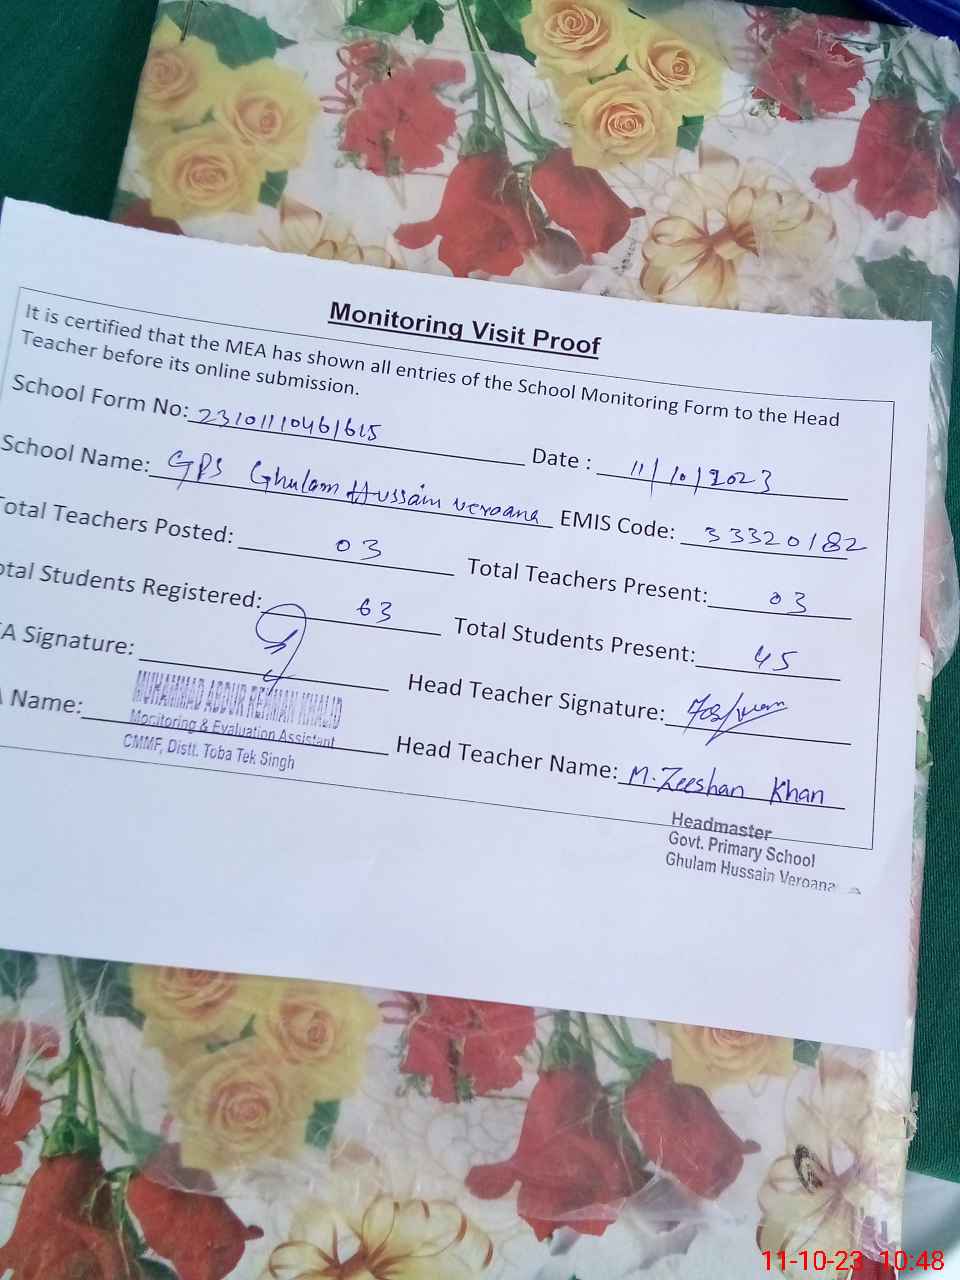 Monitoring Visit Proof
It is certified that the MEA has shown all entries of the School Monitoring Form to the Head
Teacher before its online submission.
School Form No: 23101110461615 Date : 11/10/2023
School Name: GPS Ghulam Hussain veroana EMIS Code: 33320182
otal Teachers Posted: 03 Total Teachers Present: 03
otal Students Registered: 63 Total Students Present: 45
A Signature: Head Teacher Signature:
Name: MUHAMMAD ABDUR REHMAN KHALID Head Teacher Name: M. Zeeshan Khan
Monitoring & Evaluation Assistant
CMMF, Distt. Toba Tek Singh
Headmaster
Govt. Primary School
Ghulam Hussain Veroana
11-10-23 10:48